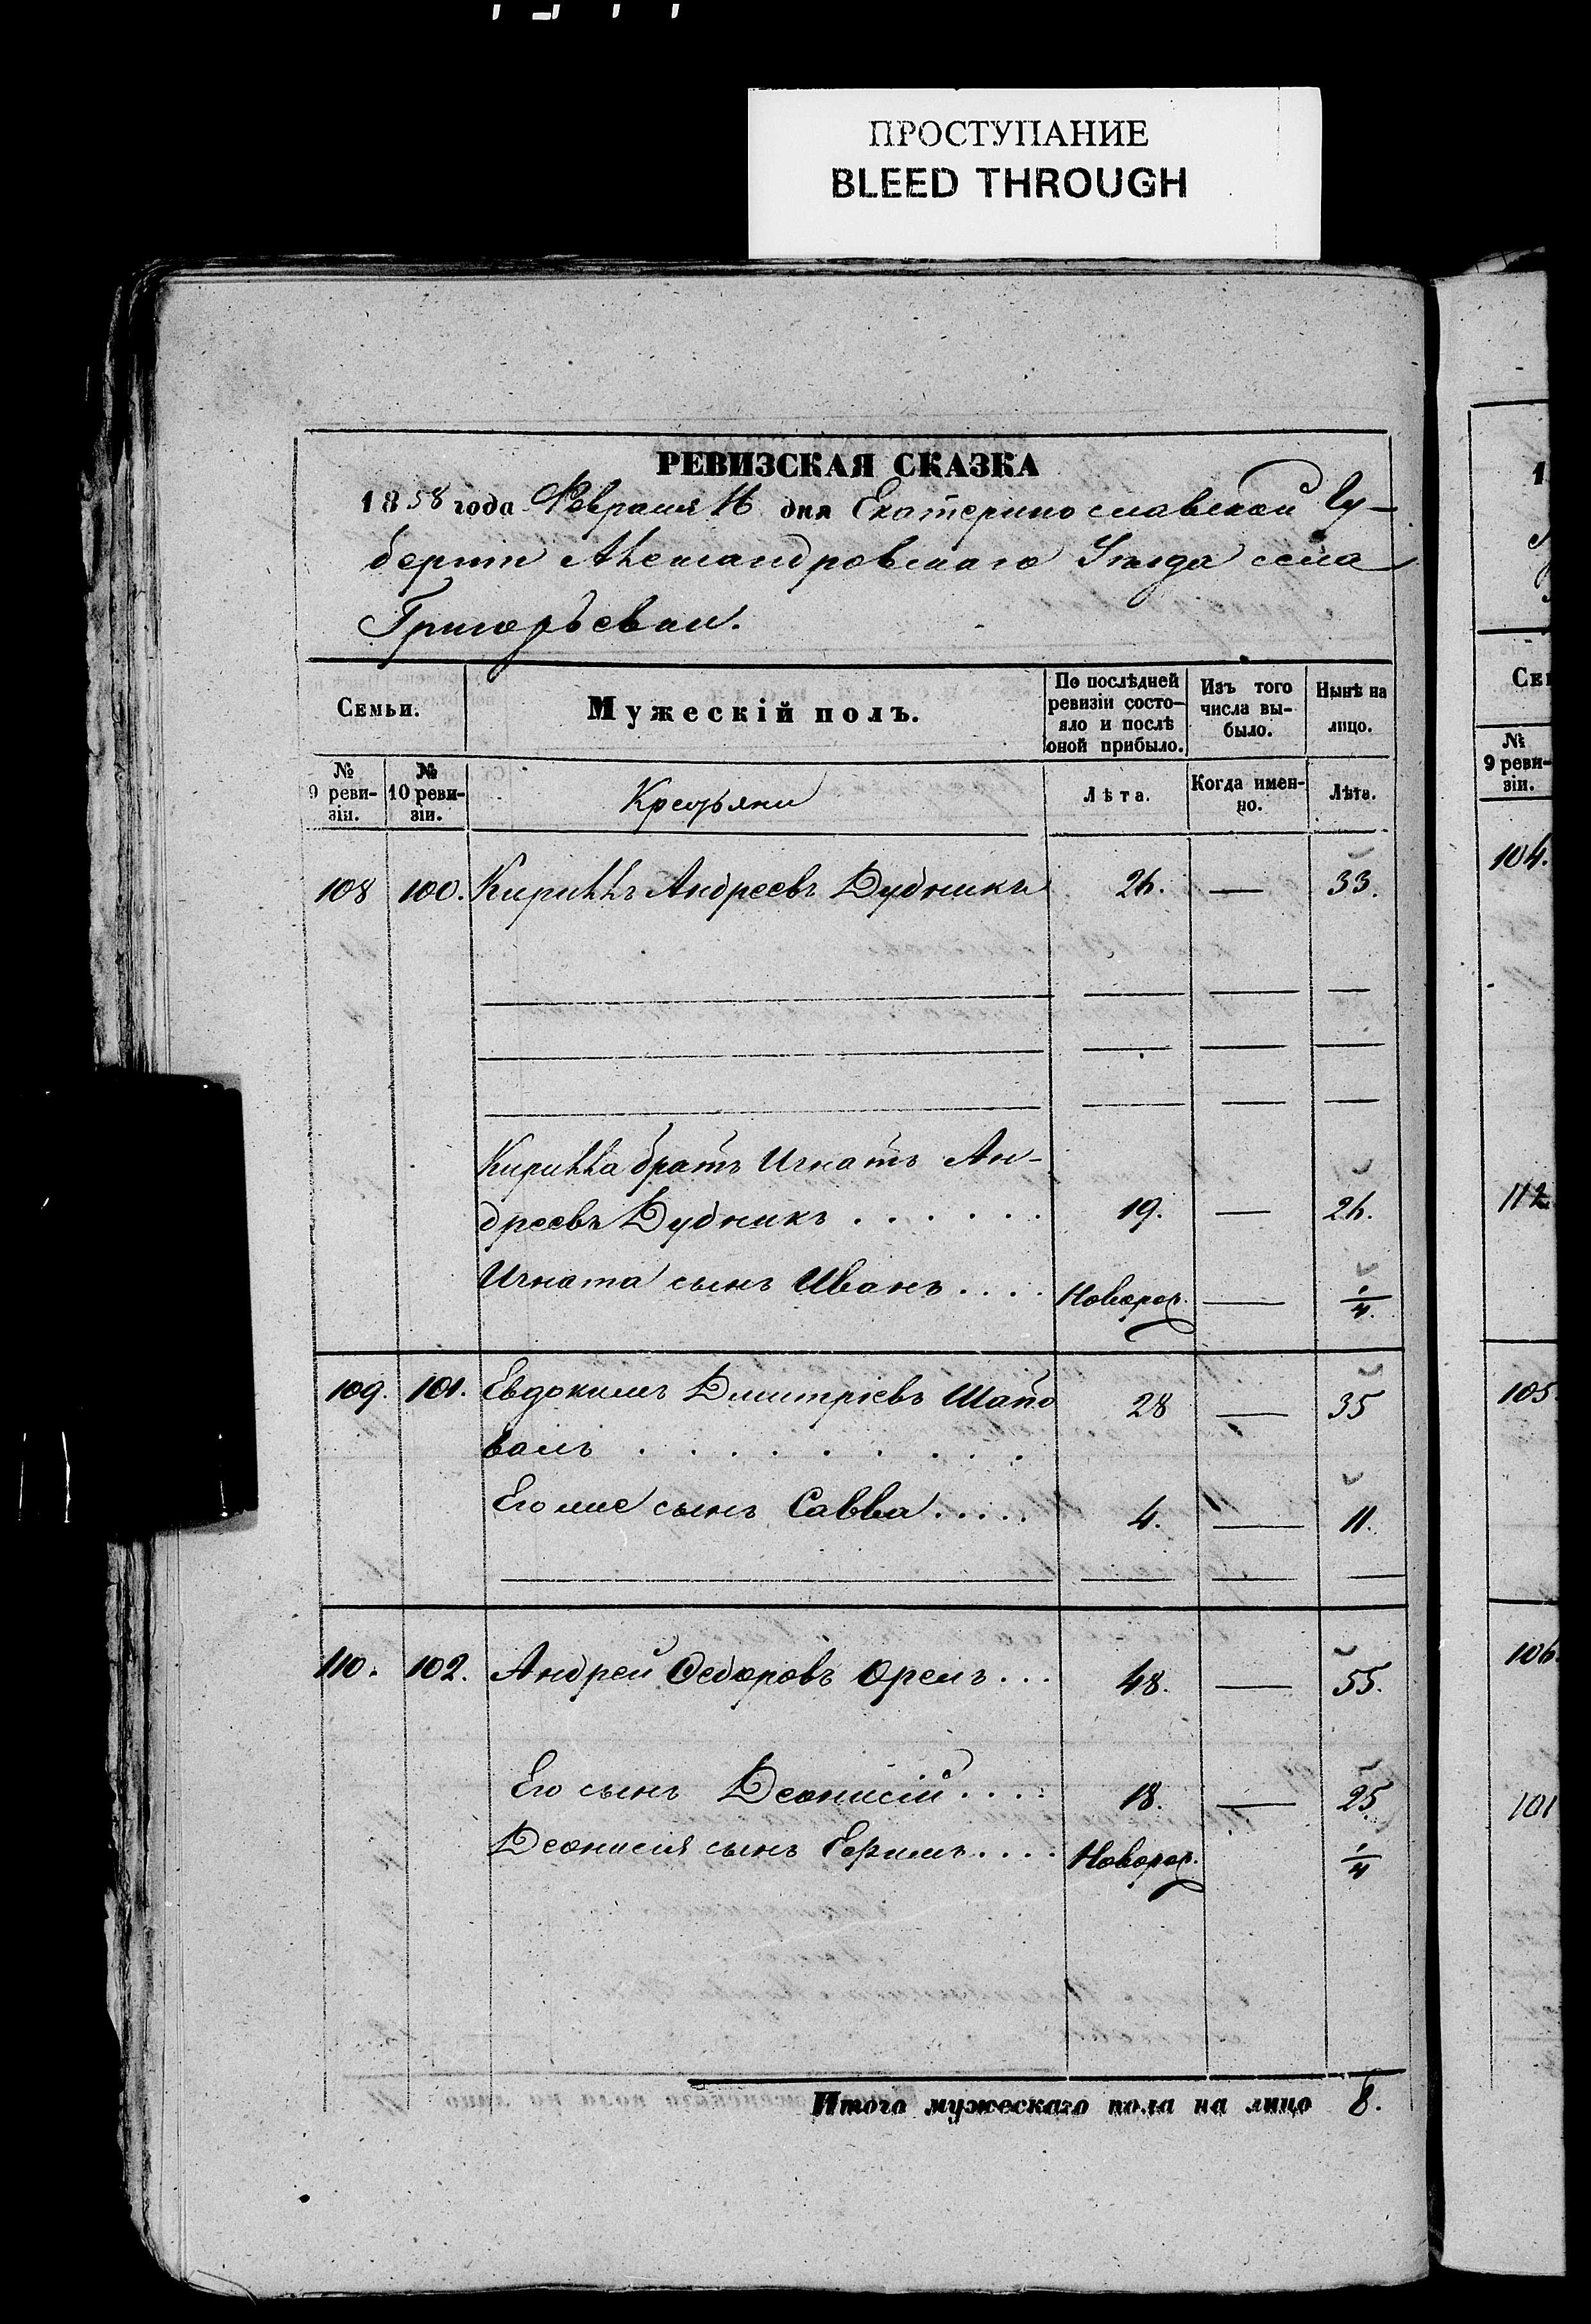 ПРОСТУПАНИЕ
BLEED THROUGH
РЕВИЗСКАЯ СКАЗКА
1858 года Февраля дня Екатеринославской Гу-
берніи Александровскаго Уѣзда села
Григорьевки.
Семьи.
Мужескій полъ.
По послѣдней
ревизіи состо-
яло и послѣ
оной прибыло.
Изъ того
числа вы-
было.
Нынѣ на
лицо.
№
9 реви-
зіи.
№
10 реви-
зіи.
Крестьяни
Лѣта.
Когда имен-
но.
Лѣта.
108 100. Кириллъ Андреевъ Дудникъ 26. — 33.
Кирилла братъ Игнатъ Ан-
дреевъ Дудникъ . . . . . . 19. — 26.
Игната сынъ Иванъ . . . . Новорож. — 1/4.
109. 101. Евдокимъ Дмитріевъ Шапо 28 — 35
валъ . . . . . . . .
Его же сынъ Савва . . . . . 4. — 11.
110. 102. Андрей Федоровъ Орелъ . . . 48. — 55.
Его сынъ Деонисій . . . . 18. — 25.
Деонисія сынъ Ефимъ . . . . Новорож. 1/4
Итого мужескаго пола на лицо 8.
1
Сем
№
9 реви-
зіи.
104.
112
105
106.
101